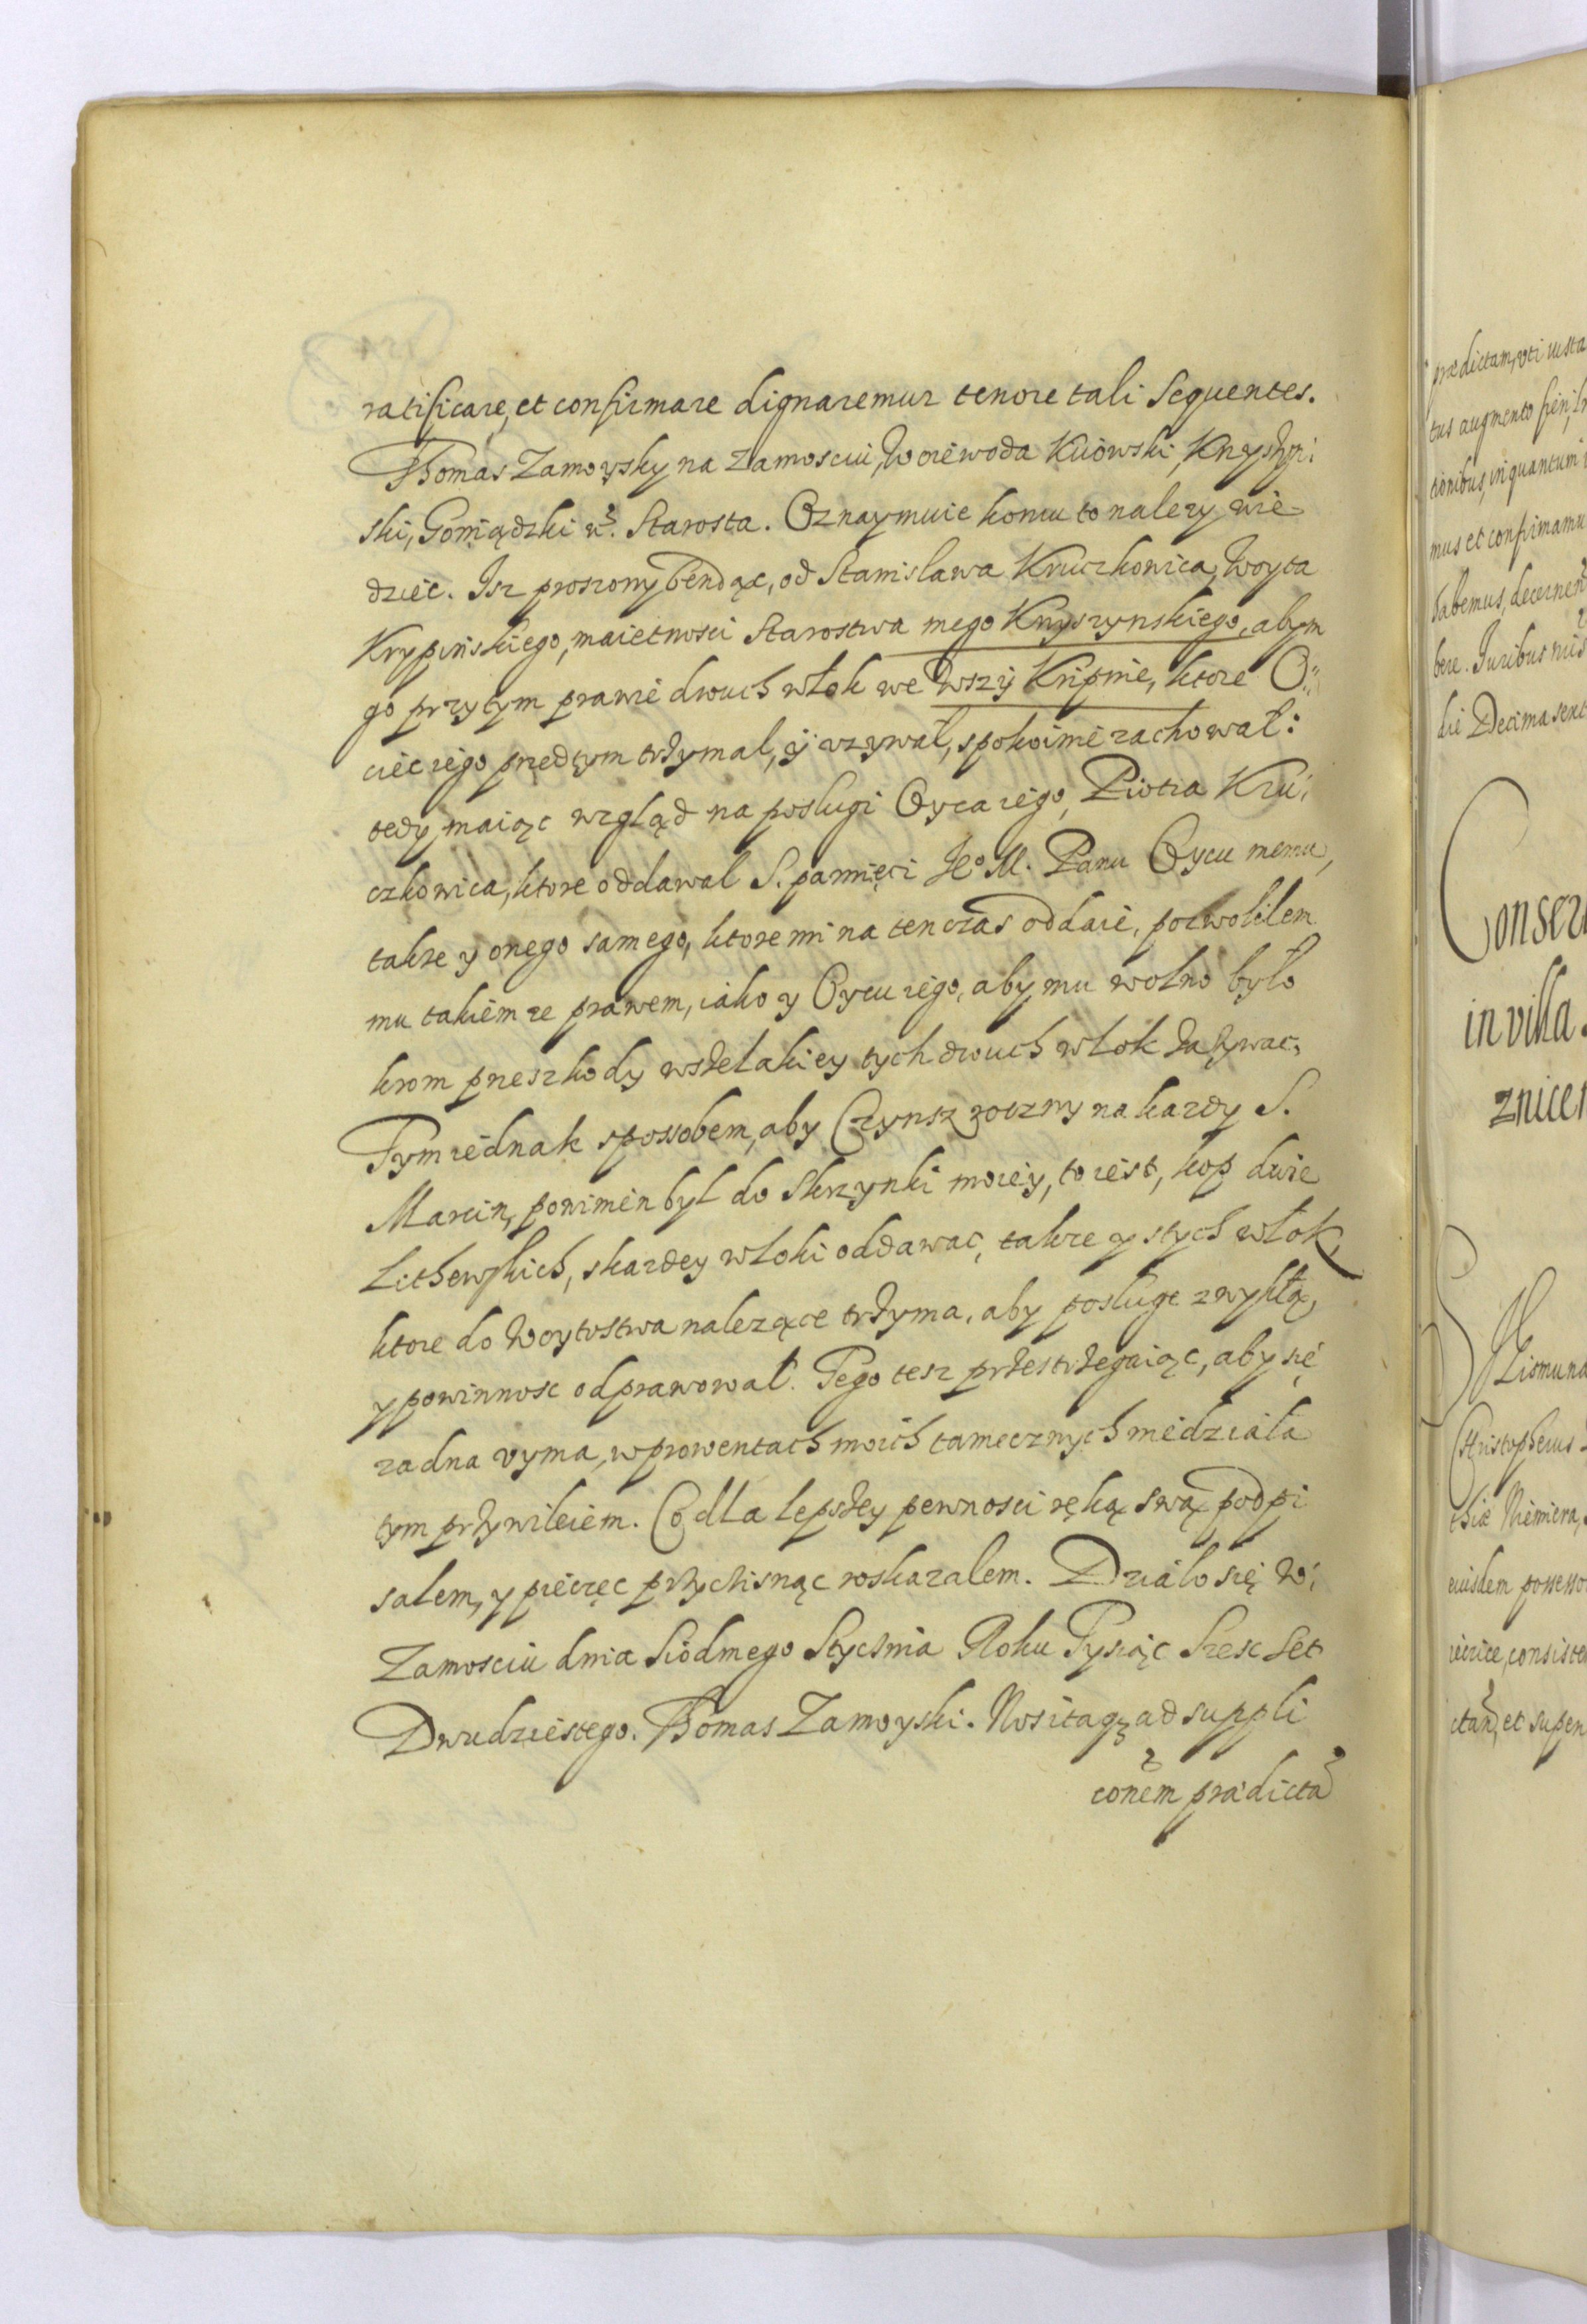 ratificare, et confirmare dignaremur tenore tali Sequentes.
Thomas Zamoysky na Zamosciu, Woiewoda Kiiowski, Knyszyni
ski, Goniądzki etc. Starosta. Oznaymuie komu to nalezy wie
dziec. Isz proszony bendąc, od Stanislawa Kruczkowica, Woyta
Krypinskiego, maietnosci Starostwa mego Knyszynskiego, abym
go przytym prawie dwuch włok we wszÿ Kripnie, ktore O
ciec iego przedtym trzymal, ÿ uzywal, spokoinie zachowal:
tedy maiąc wzgląd na poslugi Oyca iego, Piotra Kru
czkowica, ktore oddawal S. pamięci Je° M. Panu Oycu memu,
takze y onego samego, ktore mi na tenczas oddaie, pozwolilem
mu takiemze prawem, iako y Oycu iego, aby mu wolno było
krom przeszkody wszelakiey tych dwuch włok zazywac,
Tym iednak sposobem, aby Czynsz roczny na kazdy S.
Marcin, powinien byl do Skrzynki moiey, to iest, kop dwie
Lithewskich, skazdey włoki oddawac, takze y stych włok,
ktore do Woytostwa nalezące trzyma, aby posługe zwykłą,
y powinnosc odprawował. Tego tesz przestrzegaiąc, aby się
zadna uyma, w prowentach moich tamecznych niedziała
tym przywileiem. Co dla lepszey pewnosci ręką swą podpi
salem, y pieczęc przycisnąc roskazalem. Dzialo się w
Zamosciu dnia Siodmego Stycznia Roku Tysiąc Szesc Set
Dwudziestego. Thomas Zamoyski. Nos itaq; ad suppli
conem prædicta
prædictam, uti iusta
tus augmento
tionibus, in quantum i
mus et confirmamu
habemus, decernen
bere. Iuribus
die Decima sext
Conser
in villa
znicen
gismuna
Christopherus
thiæ Niemiera,
eiusdem possesso
consisten
et super